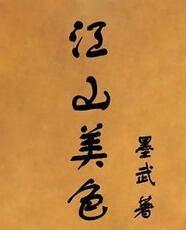 江山美色
墨武著